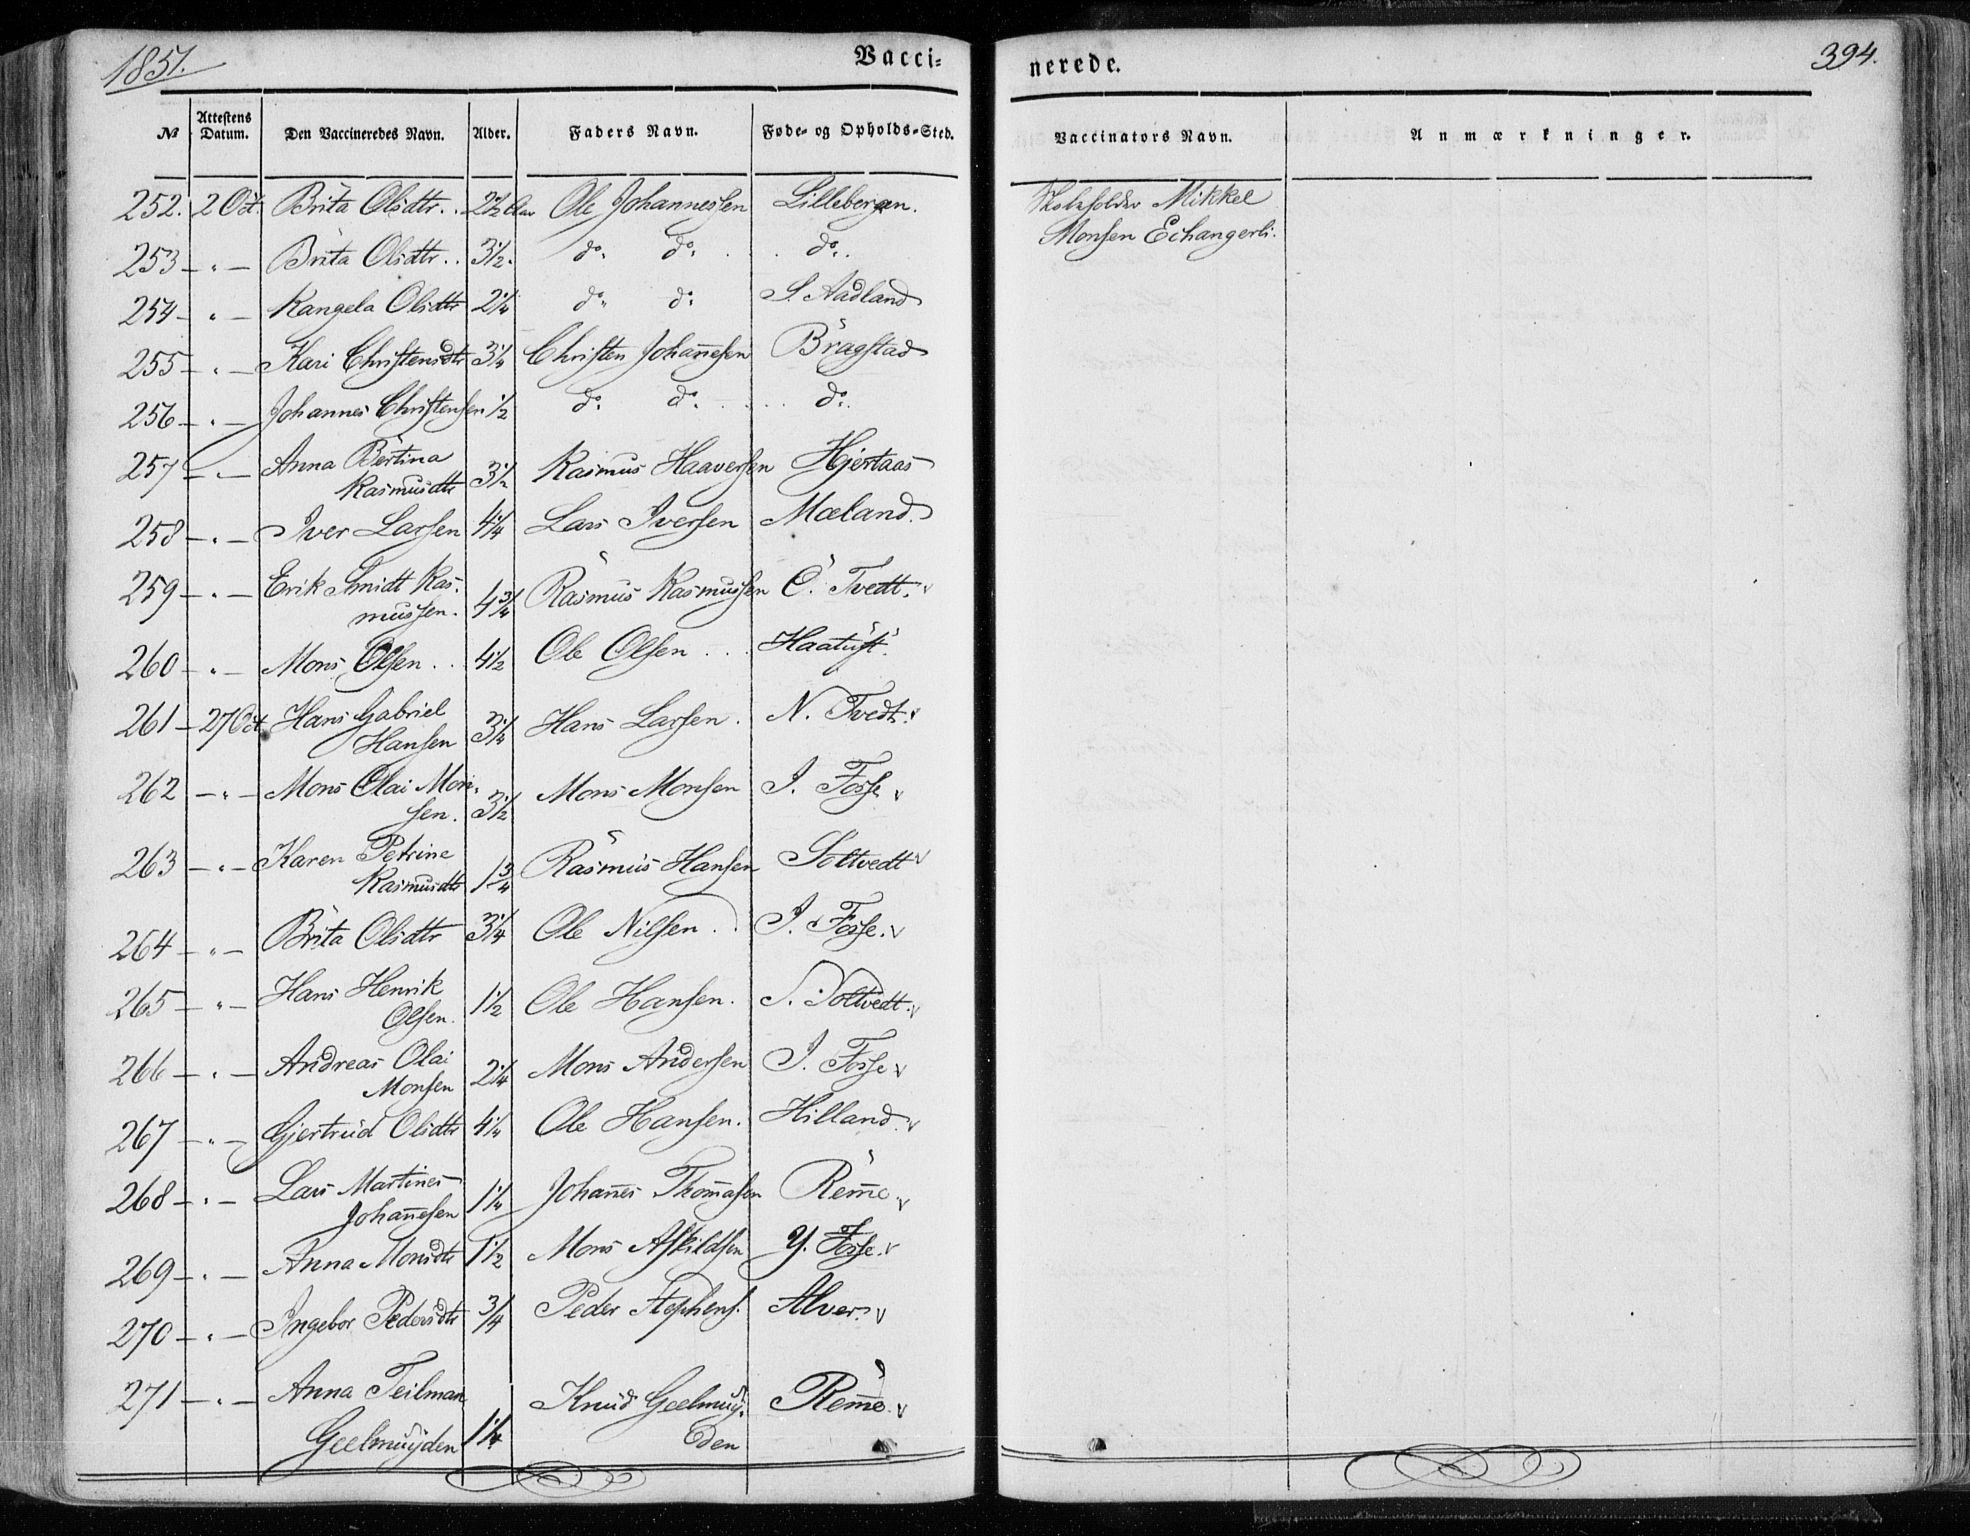 1851.
Vacci-
nerede.
394.
№ Attestens Datum. Den Vaccineredes Navn. Alder. Faders Navn. Føde- og Opholds-Sted. Vaccinators Navn. Anmærkninger.
252. 2 Oct. Brita Olsdtr. . 2½ Aar Ole Johannessen Lillebergen. Skoleholder Mikkel
Monsen Echangerli.
253 - „ - Brita Olsdtr. . 3½. do. do. . . do..
254 - „ - Rangela Olsdtr 2¼ do. do. S. Aadland
255 - „ - Kari Christensdtr 3¼ Christen Johanesen Bragstad
256 - „ - Johannes Christensen ½ do. do. . . . do.
257 - „ - Anna Bertina
Rasmusdtr 3½ Rasmus Haaversen Hjertaas
258 - „ - Iver Larsen 4¼ Lars Iversen Mæland.
259 - „ - Erik Smidt Ras-
mussen. 4¾ Rasmus Rasmussen Ö. Tvedt. v
260 - „ - Mons Olsen. . 4½ Ole Olsen . . . Haatuft.
261 - 27 Oct. Hans Gabriel
Hansen 3¼ Hans Larsen. N. Tvedt. v
262 - „ - Mons Olai Mon-
sen. 3½ Mons Monsen I. Fosse v
263 - „ - Karen Petrine
Rasmusdtr 1¾ Rasmus Hansen Soltvedt v
264 - „ - Brita Olsdtr 3¼ Ole Nilsen . . I. Fosse. v
265 - „ - Hans Henrik
Olsen. 1½ Ole Hansen. S. Soltvedt. v
266 - „ - Andreas Olai
Monsen 2¼ Mons Andersen I. Fosse v
267 - „ - Gjertrud Olsdtr 4¼ Ole Hansen. Hilland. v
268 - „ - Lars Martines
Johanesen 1¼ Johanes Thomasen Reme v
269 - „ - Anna Monsdtr 1½ Mons Askildsen Y. Fosse. v
270 - „ - Ingebor Pedersdtr ¾ Peder Stephens. Alver. v
271 - „ - Anna Teilman
Geelmuyden 1¼ Knud Geelmuy-
den Reme. v